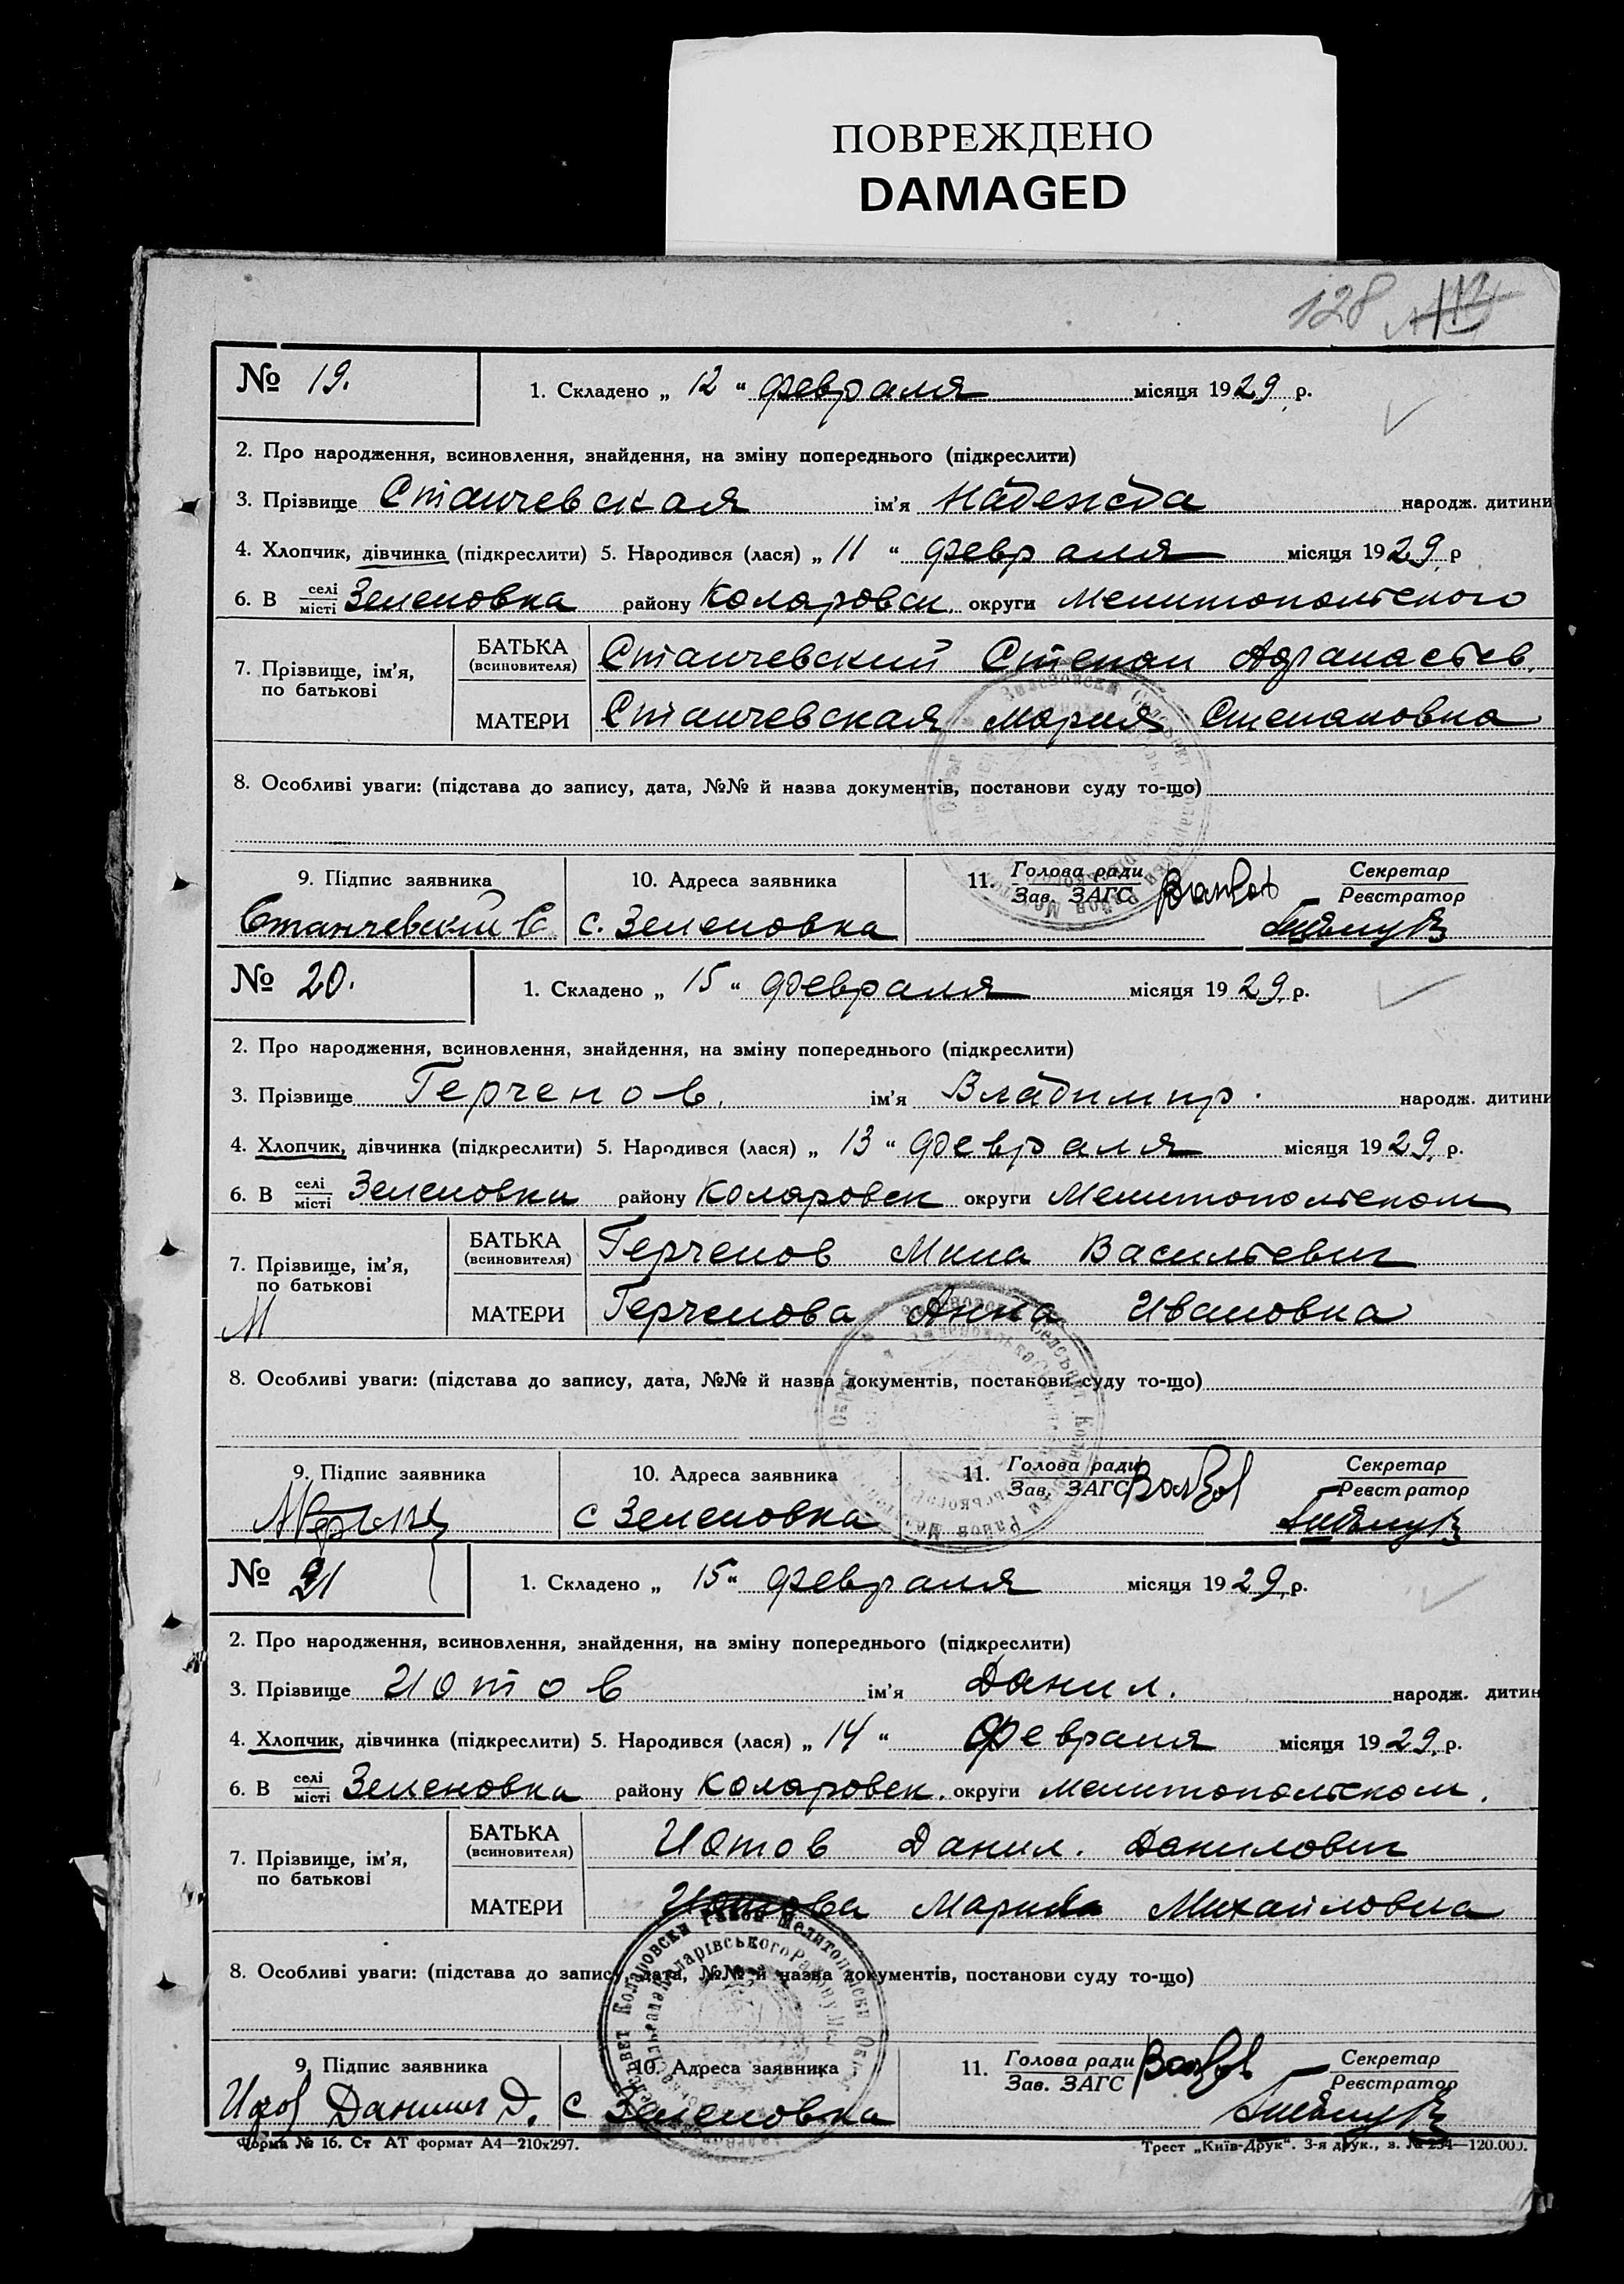 ПОВРЕЖДЕНО
DAMAGED
128
№ 19.
1. Складено „ 12 “ февраля місяця 1929 р.
2. Про народження, всиновлення, знайдення, на зміну попереднього (підкреслити)
3. Прізвище Станчевская ім'я Надежда народж. дитини
4. Хлопчик, дівчинка (підкреслити) 5. Народився (лася) „ 11 “ февраля місяця 1929 р
6. В селі місті Зеленовка району Коларовск. округи Мелитопольского
7. Прізвище, ім'я, по батькові
БАТЬКА (всиновителя) Станчевский Степан Афанасьев.
МАТЕРИ Станчевская Мария Степановна
8. Особливі уваги: (підстава до запису, дата, №№ й назва документів, постанови суду то-що)
9. Підпис заявника 10. Адреса заявника 11. Голова ради Зав. ЗАГС Секретар Реєстратор
Станчевский С с. Зеленовка
№ 20.
1. Складено „ 15 “ февраля місяця 1929 р.
2. Про народження, всиновлення, знайдення, на зміну попереднього (підкреслити)
3. Прізвище Герченов. ім'я Владимир. народж. дитини
4. Хлопчик, дівчинка (підкреслити) 5. Народився (лася) „ 13 “ февраля місяця 1929 р.
6. В селі місті Зеленовки району Коларовск округи Мелитопольском
7. Прізвище, ім'я, по батькові
БАТЬКА (всиновителя) Герченов Мина Васильевич
МАТЕРИ Герченова Анна Ивановна
8. Особливі уваги: (підстава до запису, дата, №№ й назва документів, постанови суду то-що)
9. Підпис заявника 10. Адреса заявника 11. Голова ради Зав. ЗАГС Секретар Реєстратор
с Зеленовка
№ 21
1. Складено „ 15 “ февраля місяця 1929 р.
2. Про народження, всиновлення, знайдення, на зміну попереднього (підкреслити)
3. Прізвище Иотов ім'я Данил. народж. дитин
4. Хлопчик, дівчинка (підкреслити) 5. Народився (лася) „ 14 “ Февраля місяця 1929 р.
6. В селі місті Зеленовка району Коларовск. округи Мелитопольском.
7. Прізвище, ім'я, по батькові
БАТЬКА (всиновителя) Иотов Данил. Данилович
МАТЕРИ Иотова Мария Михайловна
8. Особливі уваги: (підстава до запису, дата, №№ й назва документів, постанови суду то-що)
9. Підпис заявника 10. Адреса заявника 11. Голова ради Зав. ЗАГС Секретар Реєстратор
Данилов Д. с Зеленовка
Форма № 16. Ст АТ формат А4—210х297.
Трест „Київ-Друк“. 3-я друк., з. № 234—120.000.